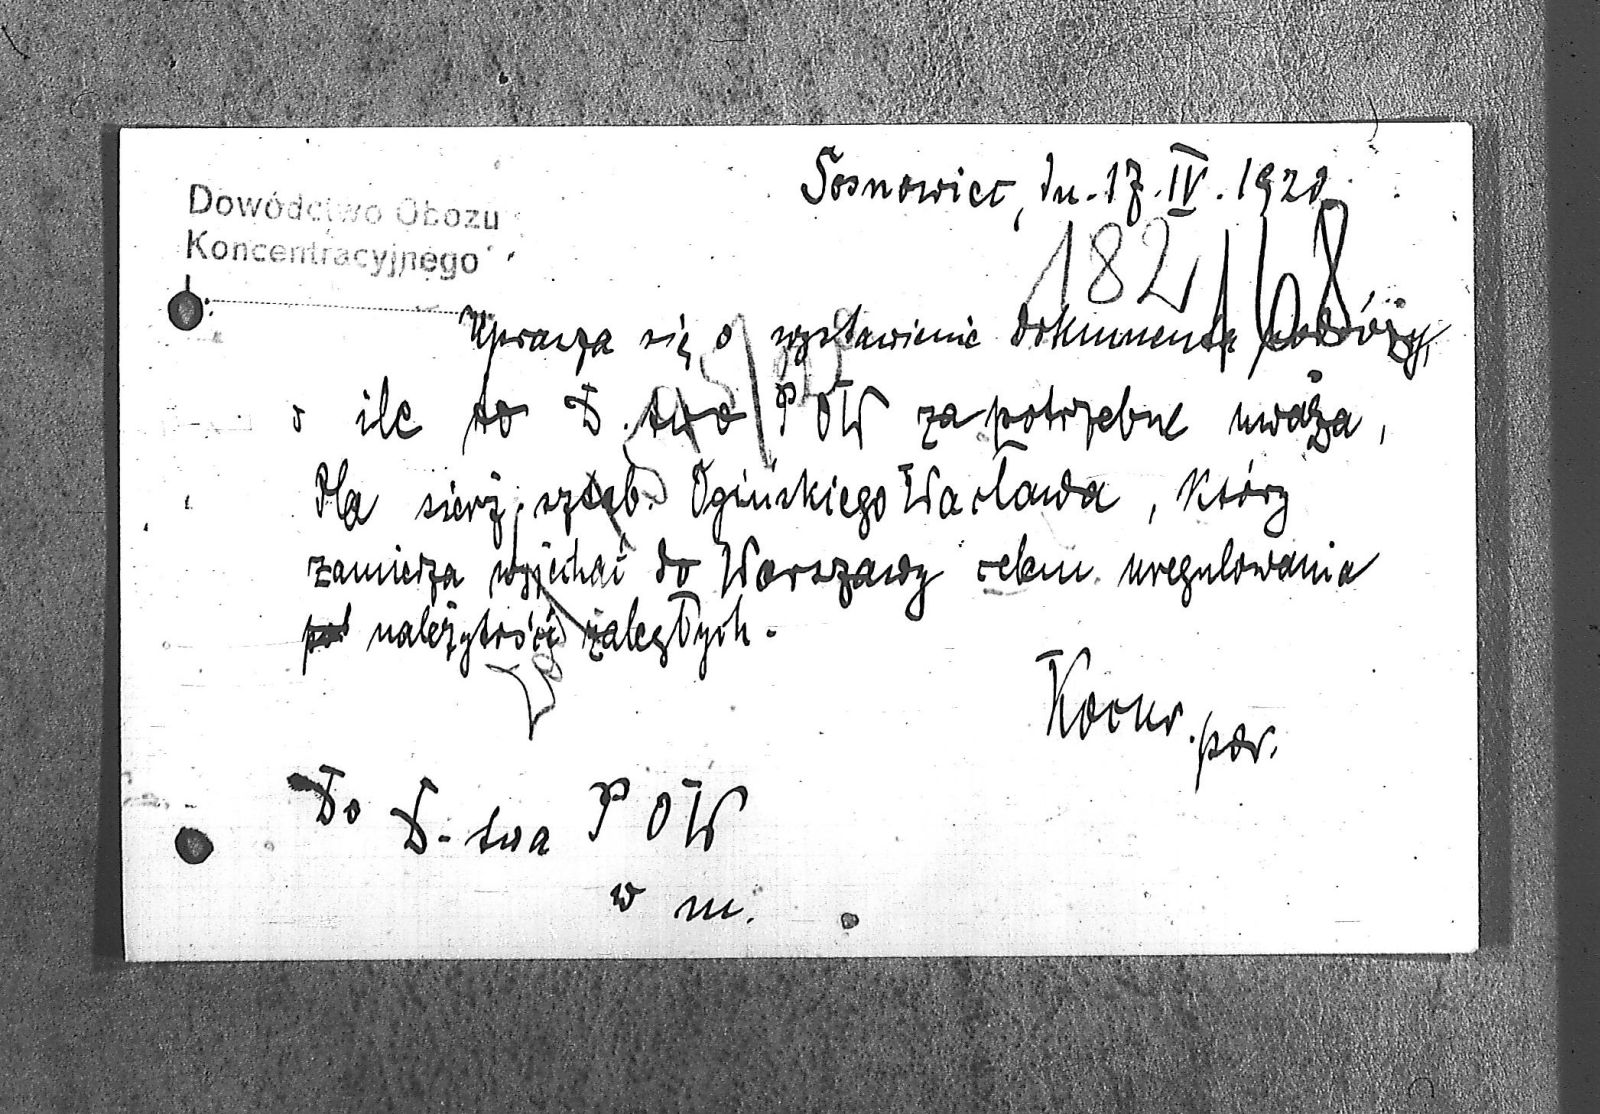 Dowództwo Obozu
Koncentracyjnego
Sosnowiec, dn. 17.IV.1920.
182/68
Uprasza się o wystawienie dokumentu podróży,
o ile to D.two POW za potrzebne uważa,
dla sierż. sztab. Ogińskiego Wacława, który
zamierza wyjechać do Warszawy celem uregulowania
należytości zaległych.
por.
Do D-twa POW
w m.